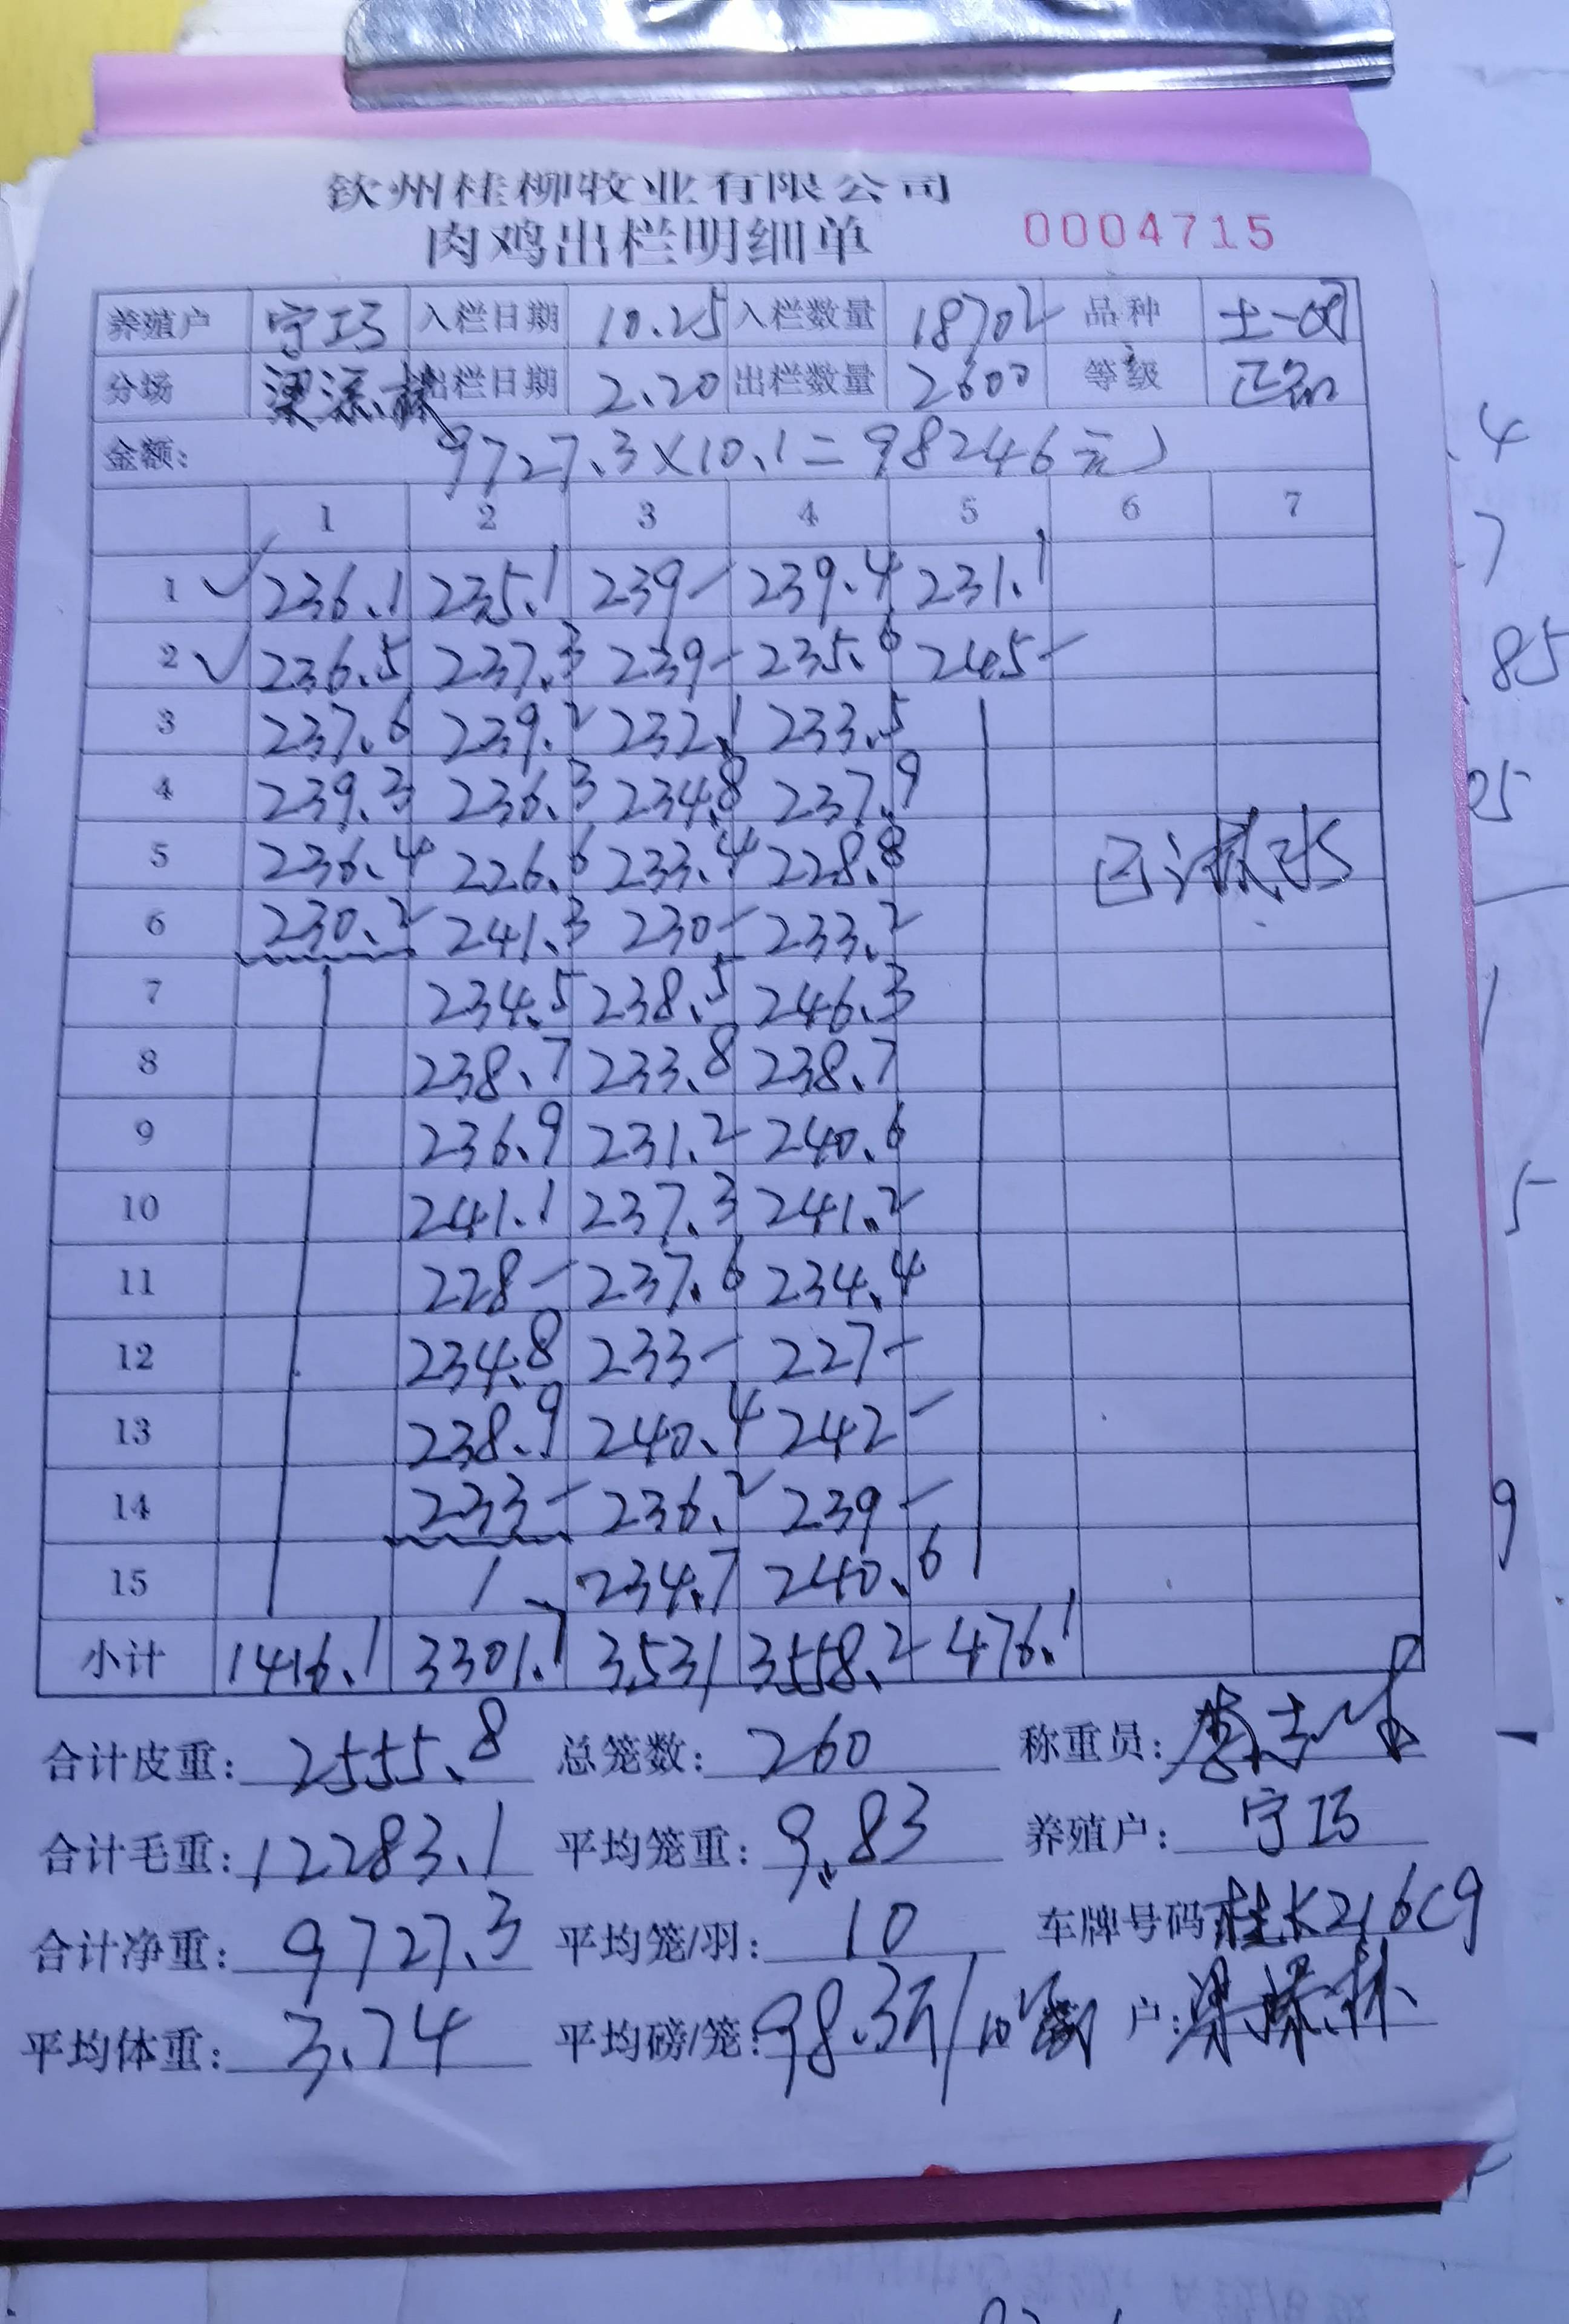 钦州桂柳牧业有限公司
肉鸡出栏明细单 0004715
养殖户 宁巧 入栏日期 10.25 入栏数量 18702 品种 土一
分场 梁添林 出栏日期 2.20 出栏数量 2600 等级 正品
金额: 9727.3×10.1=98246元
1 2 3 4 5 6 7
1 ✓ 236.1 235.1 239- 239.4 231.1
2 ✓ 236.5 237.3 239- 235.6 245-
3 237.6 239.2 232.1 233.5
4 239.3 236.3 234.8 237.9
5 236.4 226.6 233.4 228.8
6 230.2 241.3 230- 233.2
7 234.5 238.5 246.3
8 238.7 233.8 238.7
9 236.9 231.2 240.6
10 241.1 237.3 241.2
11 228- 237.6 234.4
12 234.8 233- 227-
13 238.9 240.4 242-
14 233- 236.2 239-
15 234.7 240.6
小计 1416.1 3301.7 3531 3558.2 476.1
合计皮重: 2555.8 总笼数: 260 称重员:
合计毛重: 12283.1 平均笼重: 9.83 养殖户: 宁巧
合计净重: 9727.3 平均笼/羽: 10 车牌号码 桂K216C9
平均体重: 3.74 平均磅/笼: 98.3 户: